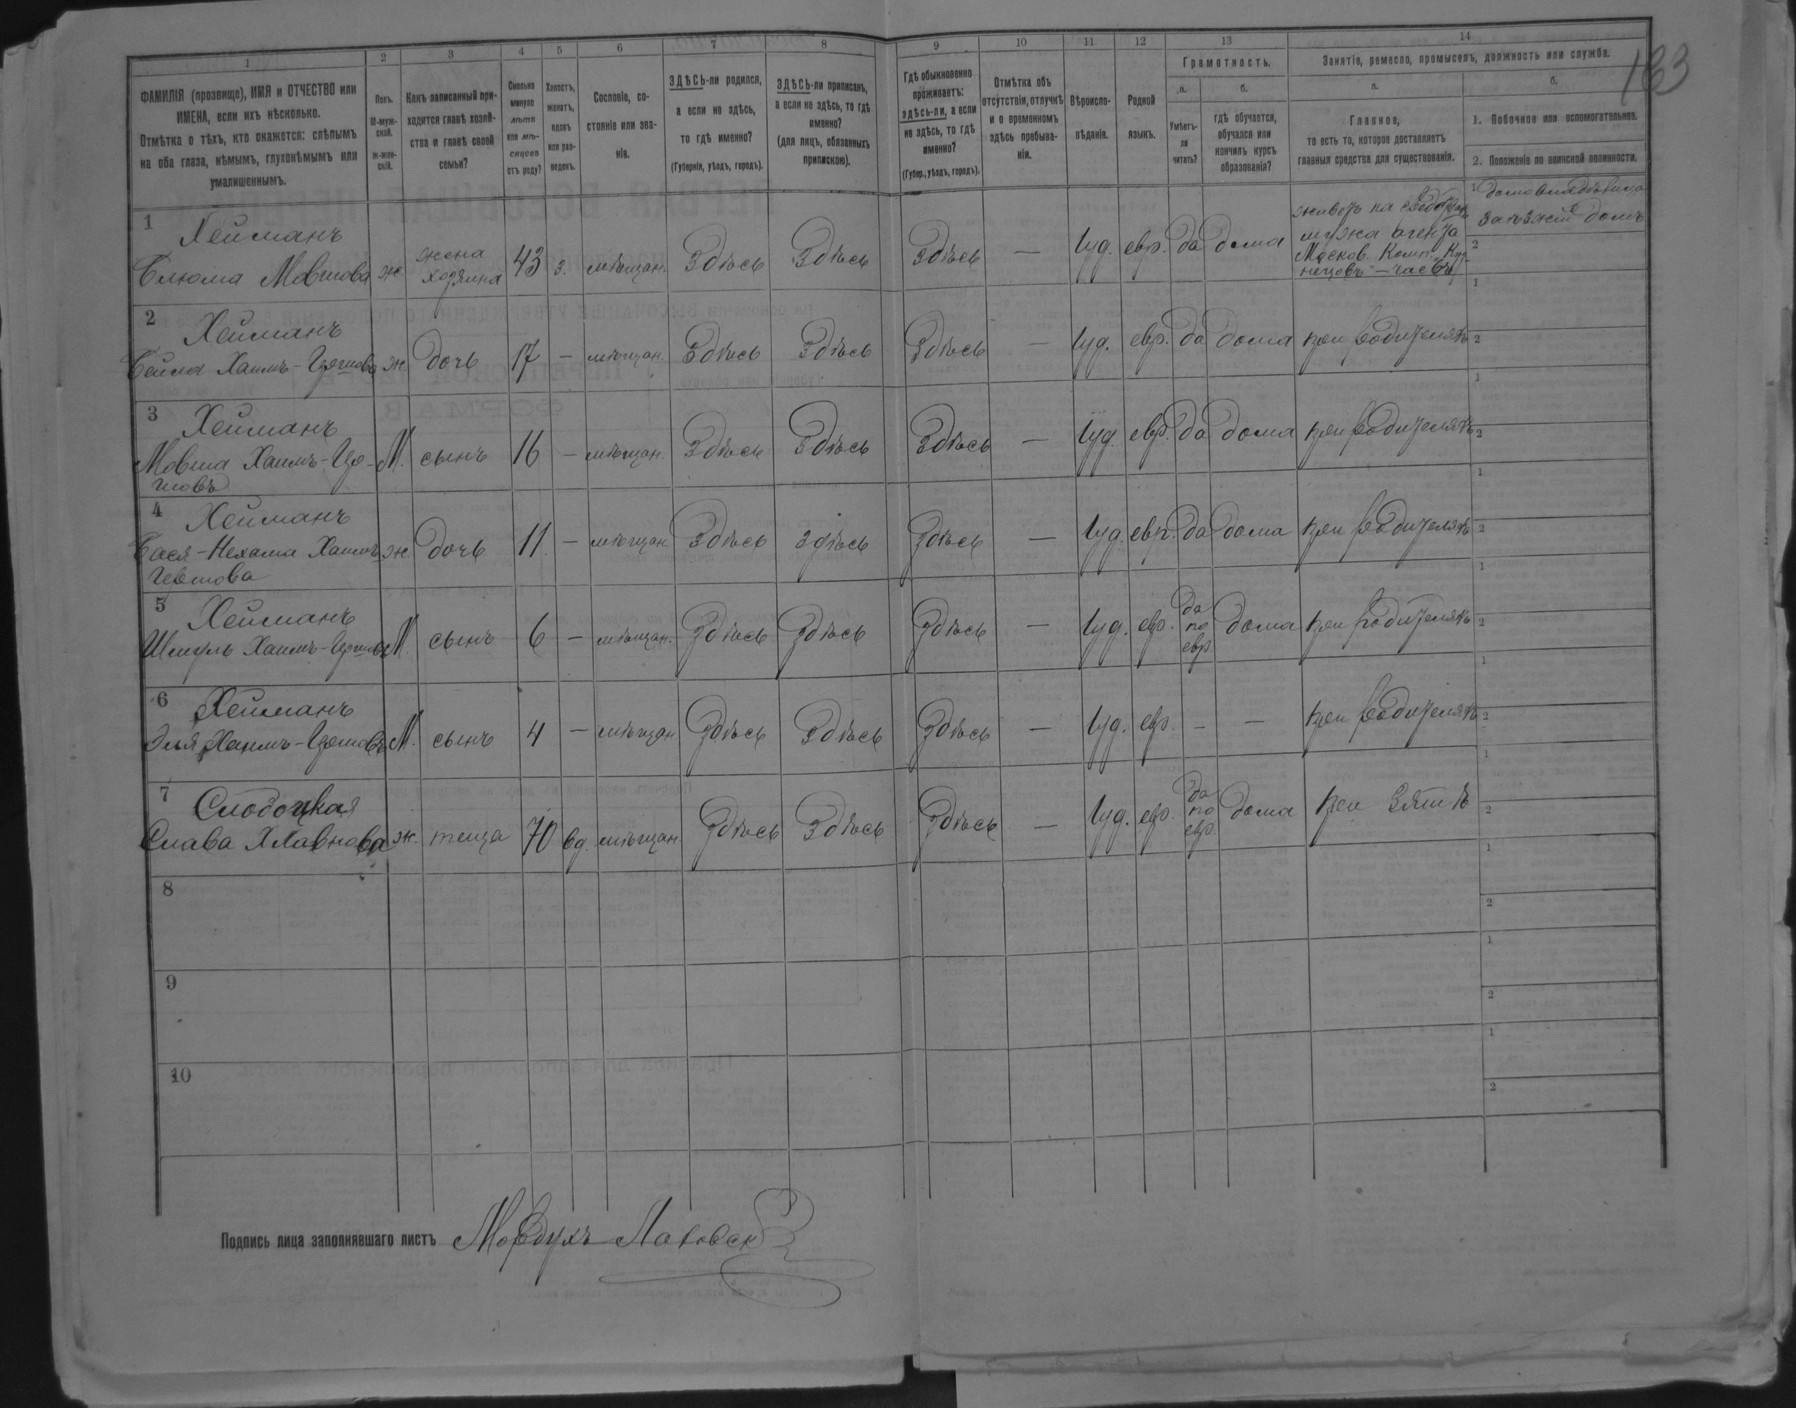 163
1 2 3 4 5 6 7 8 9 10 11 12 13 14
ФАМИЛІЯ (прозвище), ИМЯ и ОТЧЕСТВО или
ИМЕНА, если ихъ нѣсколько.
Отмѣтка о тѣхъ, кто окажется: слѣпымъ
на оба глаза, нѣмымъ, глухонѣмымъ или
умалишеннымъ.
Полъ.
М-муж-
ской.
Ж-жен-
скій.
Какъ записанный при-
ходится главѣ хозяй-
ства и главѣ своей
семьи?
Сколько
минуло
лѣтъ
или мѣ-
сяцевъ
отъ роду?
Холостъ,
женатъ,
вдовъ
или раз-
веденъ.
Сословіе, со-
стояніе или зва-
ніе.
ЗДѢСЬ-ли родился,
а если не здѣсь,
то гдѣ именно?
(Губернія, уѣздъ, городъ).
ЗДѢСЬ-ли приписанъ,
а если не здѣсь, то гдѣ
именно?
(для лицъ, обязанныхъ
припискою).
Гдѣ обыкновенно
проживаетъ:
здѣсь-ли, а если
не здѣсь, то гдѣ
именно?
(Губер., уѣздъ, городъ).
Отмѣтка объ
отсутствіи, отлучкѣ
и о временномъ
здѣсь пребыва-
ніи.
Вѣроиспо-
вѣданіе.
Родной
языкъ.
Грамотность.
а.
Умѣетъ-
ли
читать?
б.
гдѣ обучается,
обучался или
кончилъ курсъ
образованія?
Занятіе, ремесло, промыселъ, должность или служба.
а.
Главное,
то есть то, которое доставляетъ
главныя средства для существованія.
б.
1. Побочное или вспомогательное.
2. Положеніе по воинской повинности.
1
Хейманъ
Блюма Мовшова ж жена
хозяина 43 з. мѣщан. Здѣсь Здѣсь Здѣсь — Іуд. евр. да дома
живетъ на
мужа агента
Москов. Комп.
— чаевъ
1
домъ
2
2
Хейманъ
Бейла Хаимъ- ж. дочь 17 — мѣщан. Здѣсь Здѣсь Здѣсь — Іуд. евр. да дома при родителяхъ
1
2
3
Хейманъ
Мовша Хаимъ- М. сынъ 16 — мѣщан. Здѣсь Здѣсь Здѣсь — Іуд. евр. да дома при родителяхъ
1
2
4
Хейманъ
Бася-Нехама ж. дочь 11 — мѣщан. Здѣсь здѣсь Здѣсь — Іуд. евр. да дома при родителяхъ
1
2
5
Хейманъ
Хаимъ- М. сынъ 6 — мѣщан. Здѣсь Здѣсь Здѣсь — Іуд. евр. да
по
евр. дома при родителяхъ
1
2
6
Хейманъ
Эля Хаимъ- М. сынъ 4 — мѣщан. Здѣсь Здѣсь Здѣсь — Іуд. евр. — — при родителяхъ
1
2
7
Слободская
Слава ж. теща 70 вд. мѣщан. Здѣсь Здѣсь Здѣсь — Іуд. евр. да
по
евр. дома при зятѣ
1
2
8
1
2
9
1
2
10
1
2
Подпись лица заполнявшаго листъ Мордухъ